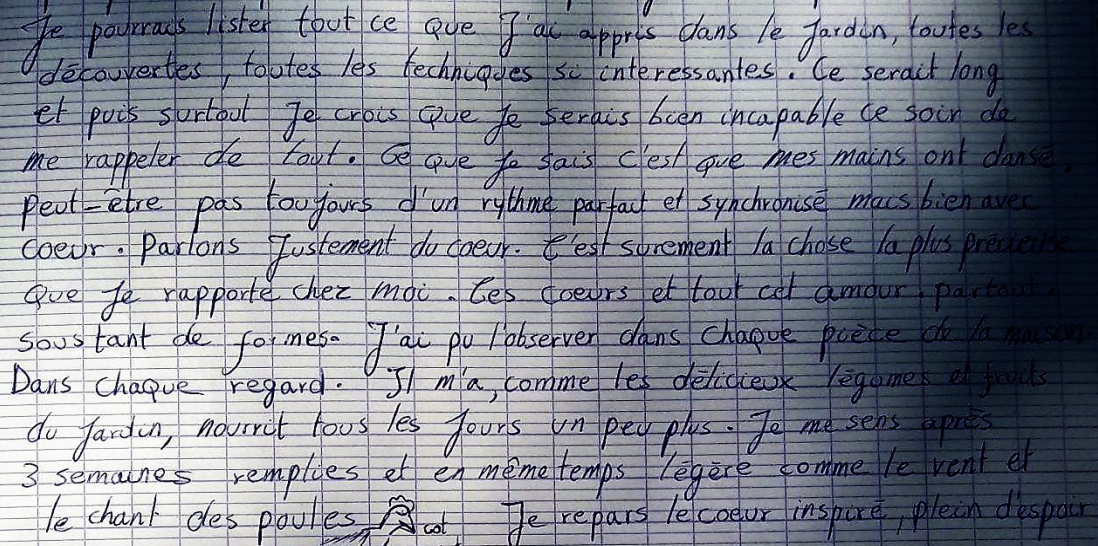 Je pourrais lister tout ce que J'ai appris dans le Jardin, toutes les
découvertes, toutes les techniques si interessantes. Ce serait long
et puis surtout Je crois que Je serais bien incapable ce soir de
me rappeler de tout. Ce que Je sais c'est que mes mains ont dansé,
Peut-être pas toujours d'un rythme parfait et synchronisé mais bien avec
coeur. Parlons Justement du coeur. C'est surement la chose la plus précieuse
Que Je rapporte chez moi. Ces coeurs et tout cet amour, partout.
Sous tant de formes. J'ai pu l'observer dans chaque pièce de la maison
Dans chaque regard. Il m'a, comme les délicieux légumes et fruits
du Jardin, nourrit tous les Jours un peu plus. Je me sens après
3 semaines remplies et en même temps légère comme le vent et
le chant des poules cot Je repars le coeur inspiré, plein d'espoir